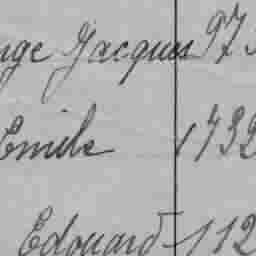 nge Jacques 973
Emile 1732
Edouard 112